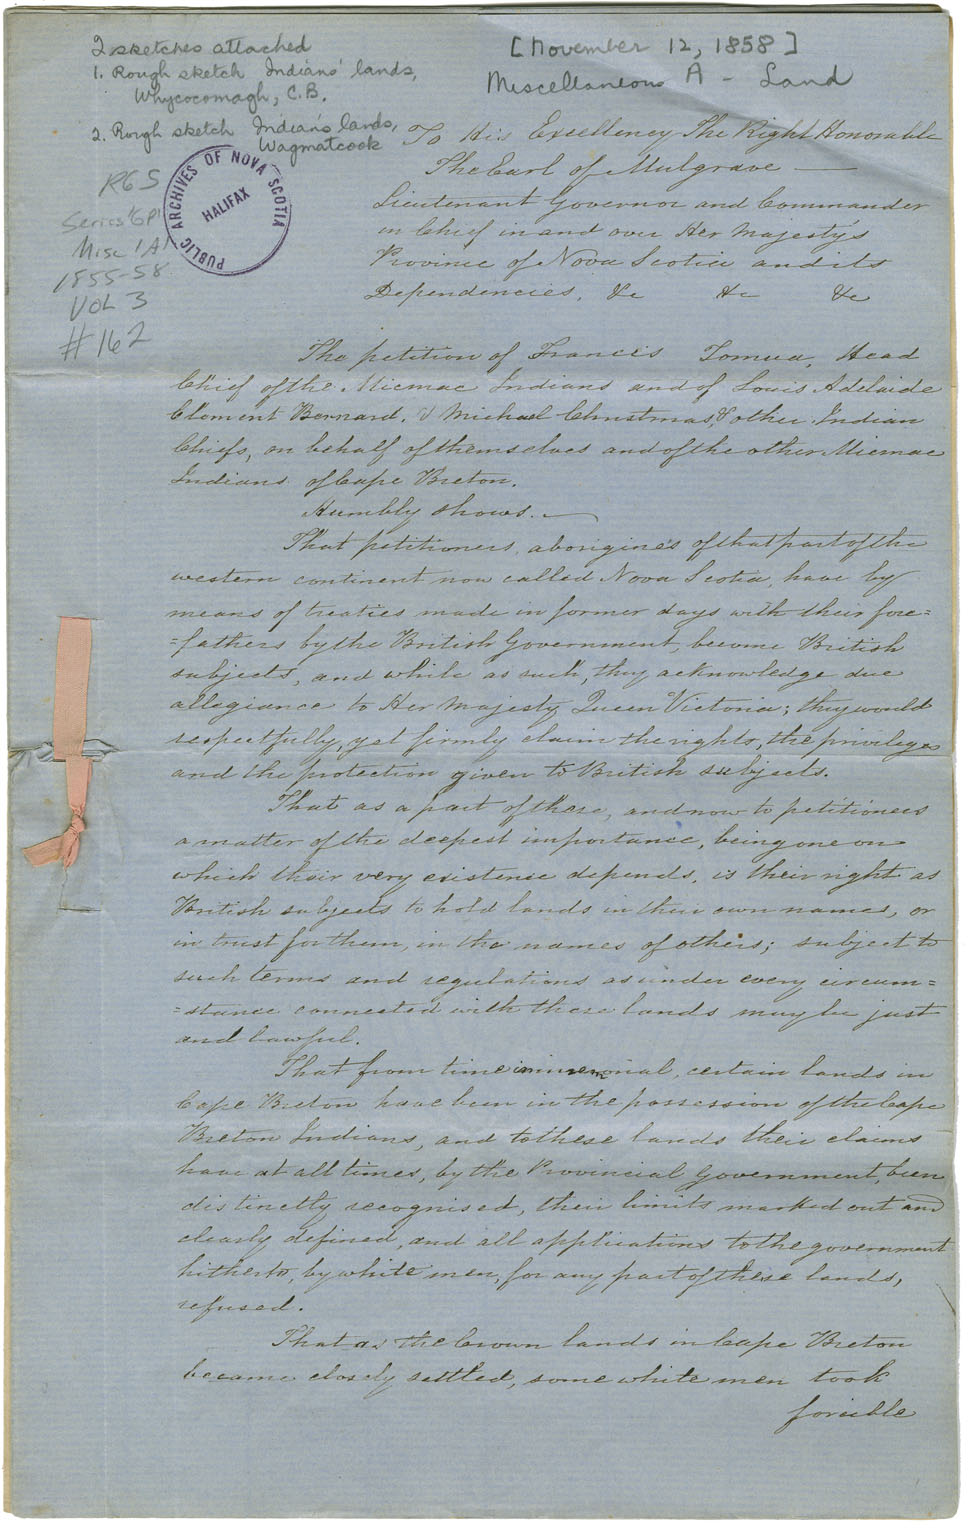 2 sketches attached
1. Rough sketch Indians' lands,
Whycocomagh, C.B.
2. Rough sketch Indians lands,
Wagmatcook
[November 12, 1858]
Miscellaneous A - Land
RG5
Series 'GP'
Misc 'A'
1855-58
VOL 3
#162
PUBLIC ARCHIVES OF NOVA SCOTIA
HALIFAX
To His Excellency The Right Honorable
The Earl of Mulgrave —
Lieutenant Governor and Commander
in Chief in and over Her Majesty's
Province of Nova Scotia and its
Dependencies, &c &c &c
The petition of Francis Tomua, Head
Chief of the Micmac Indians and of Louis Adelaide
Clement Bernard, & Michael Christmas, & other Indian
Chiefs, on behalf of themselves and of the other Micmac
Indians of Cape Breton.
Humbly shows. —
That petitioners, aborigines of that part of the
western continent now called Nova Scotia, have by
means of treaties made in former days with their fore=
=fathers by the British Government, become British
subjects, and while as such, they acknowledge due
allegiance to Her Majesty Queen Victoria; they would
respectfully, yet firmly claim the rights, the privileges
and the protection given to British subjects.
That as a part of these, and now to petitioners
a matter of the deepest importance, being one on
which their very existence depends, is their right as
British subjects to hold lands in their own names, or
in trust for them, in the names of others; subject to
such terms and regulations as under every circum=
=stance connected with these lands may be just
and lawful.
That from time immemorial, certain lands in
Cape Breton have been in the possession of the Cape
Breton Indians, and to these lands their claims
have at all times, by the Provincial Government, been
distinctly recognised, their limits marked out and
clearly defined, and all applications to the government
hitherto, by white men, for any part of these lands,
refused.
That as the Crown lands in Cape Breton
became closely settled, some white men took
forcible